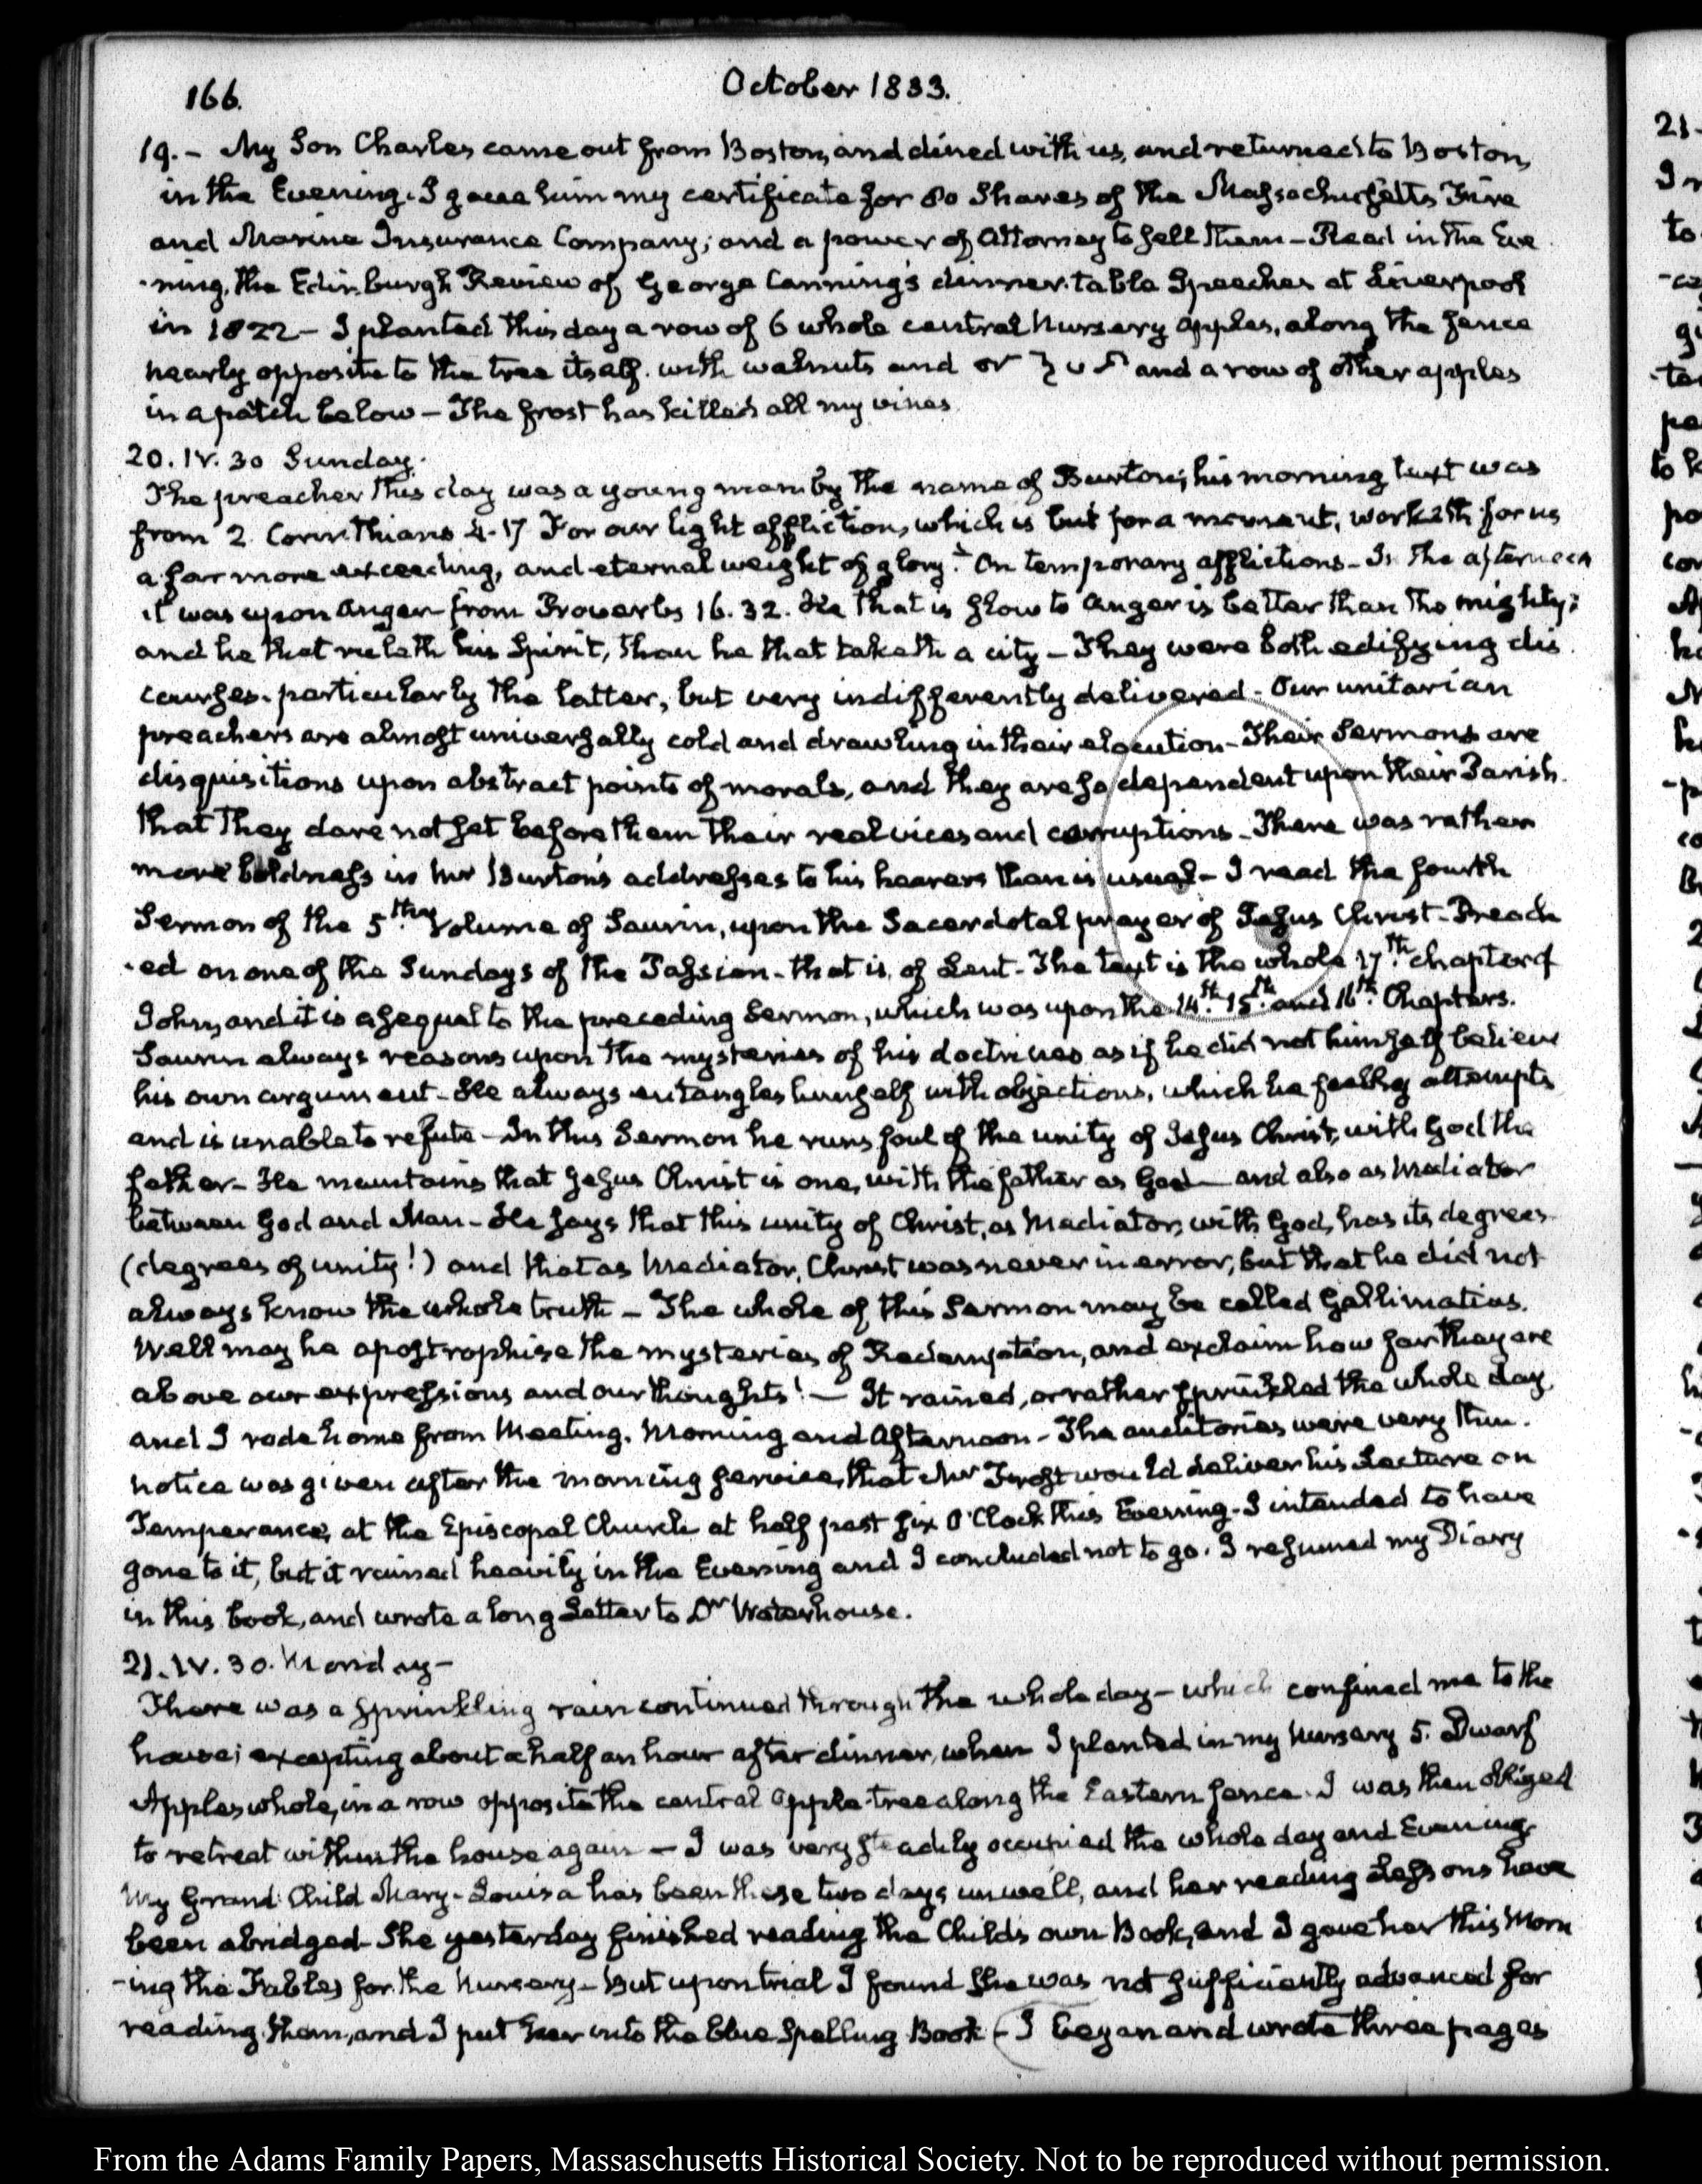 166.
October 1833.
19. - My Son Charles came out from Boston, and dined with us, and returned to Boston,
in the Evening. I gave him my certificate for 80 Shares of the Massachusetts Fire
and Marine Insurance Company; and a power of Attorney to sell them - Read in the Eve
-ning, the Edinburgh Review of George Canning's dinner-table Speeches at Liverpool
in 1822 - I planted this day a row of 6 whole central Nursery apples, along the fence
nearly opposite to the tree itself. with walnuts and and a row of other apples
in a patch below - The frost has killed all my vines.
20. IV. 30 Sunday.
The preacher this day was a young man by the name of Burton; his morning text was
from 2. Corinthians 4-17 For our light affliction, which is but for a moment, worketh for us
a far more exceeding, and eternal weight of glory. On temporary afflictions - In the afternoon
it was upon Anger from Proverbs 16. 32. He that is slow to Anger is better than the mighty;
and he that ruleth his Spirit, than he that taketh a city - They were both edifying dis
courses. particularly the latter, but very indifferently delivered - Our unitarian
preachers are almost universally cold and drawling in their elocution - Their Sermons are
disquisitions upon abstract points of morals, and they are so dependent upon their Parish.
that they dare not set before them their real vices and corruptions - There was rather
more boldness in Mr Burton's addresses to his hearers than is usual - I read the fourth
Sermon of the 5th. Volume of Saurin, upon the Sacerdotal prayer of Jesus Christ - Preach
-ed on one of the Sundays of the Passion - that is, of Lent - The text is the whole 17th. chapter of
John, and it is a sequal to the preceding Sermon, which was upon the 14th. 15th. and 16th. Chapters.
Saurin always reasons upon the mysteries of his doctrines as if he did not himself believe
his own argument - He always entangles himself with objections, which he feebly attempts
and is unable to refute - In this Sermon he runs foul of the unity of Jesus Christ, with God the
father - He maintains that Jesus Christ is one, with the father as God - and also as Mediator
between God and Man - He says that this unity of Christ, as Mediator, with God, has its degrees
(degrees of unity!) and that as Mediator, Christ was never in error, but that he did not
always know the whole truth - The whole of this Sermon may be called Gallimatias.
Well may he apostrophise the mysteries of Redemption, and exclaim how far they are
above our expressions and our thoughts! - It rained, or rather sprinkled the whole day,
and I rode home from Meeting, Morning and Afternoon - The auditories were very thin.
notice was given after the morning service, that Mr Frost would deliver his Lecture on
Temperance, at the Episcopal Church at half past six O'Clock this Evening - I intended to have
gone to it, but it rained heavily in the Evening and I concluded not to go. I resumed my Diary
in this book, and wrote a long Letter to Dr Waterhouse.
21. IV. 30. Monday -
There was a sprinkling rain continued through the whole day - which confined me to the
house; excepting about a half an hour after dinner, when I planted in my Nursery 5. Dwarf
Apples whole, in a row opposite the central apple-tree along the Eastern fence. I was then obliged
to retreat within the house again - I was very steadily occupied the whole day and Evening.
My Grand Child Mary-Louisa has been these two days unwell, and her reading Lessons have
been abridged - She yesterday finished reading the Child's own Book, and I gave her this Morn
-ing the Fables for the Nursery - But upon trial I found she was not sufficiently advanced for
reading them, and I put her into the blue Spelling Book - I began and wrote three pages
From the Adams Family Papers, Massachusetts Historical Society. Not to be reproduced without permission.